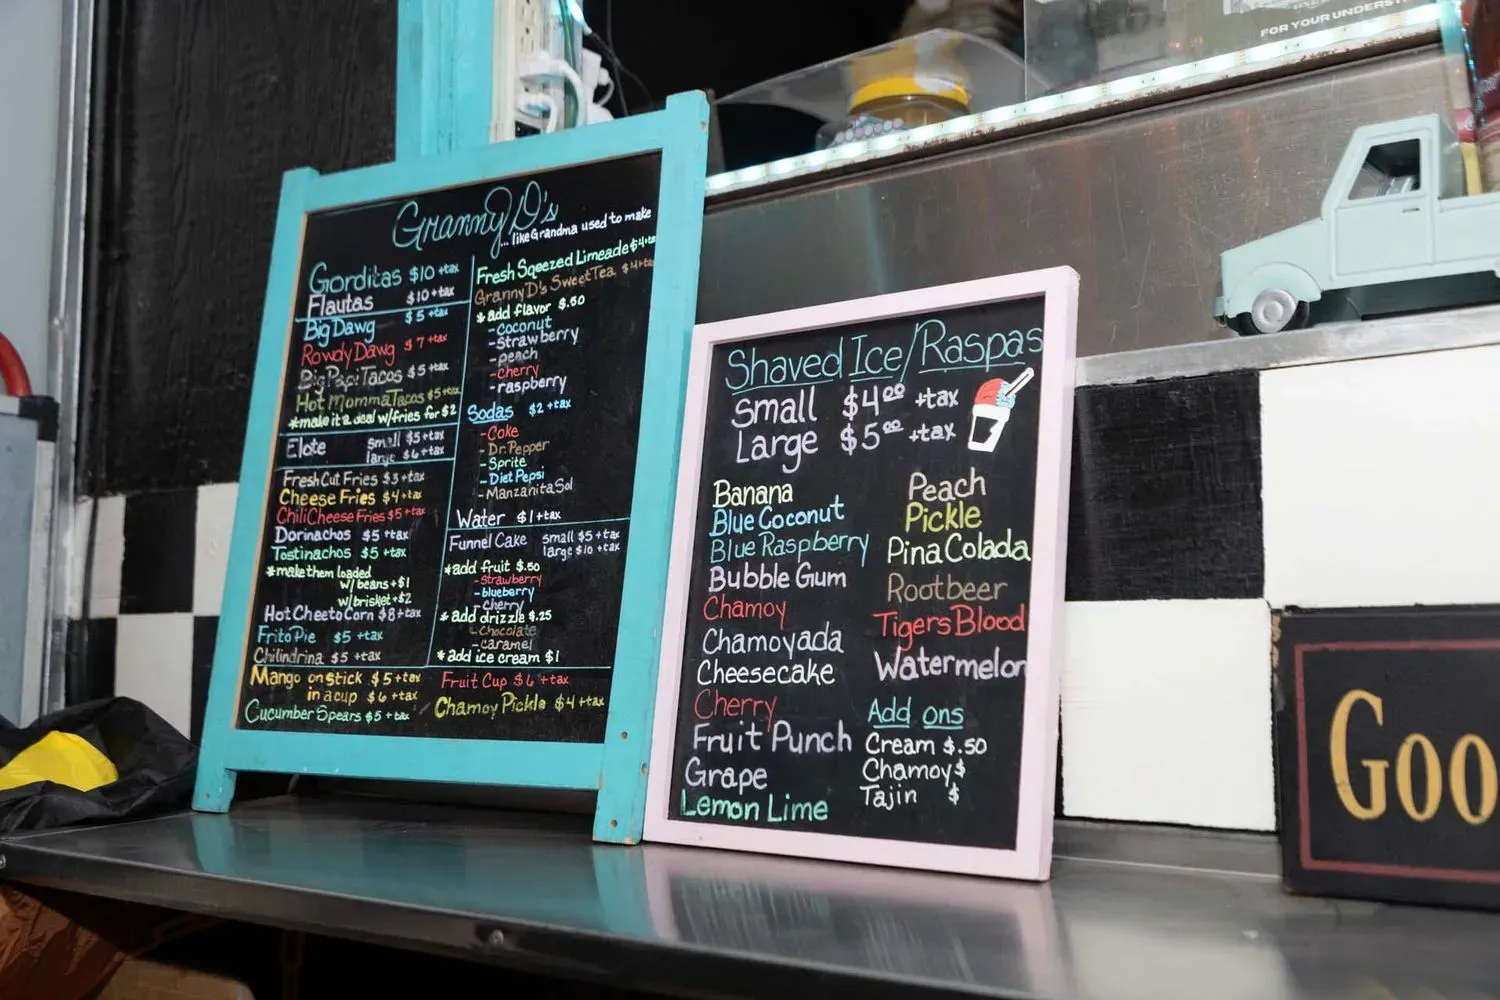 FOR YOUR UNDERST
Granny D's
... like Grandma used to make
Gorditas $10 +tax
Flautas $10 +tax
Big Dawg $5 +tax
Rowdy Dawg $7 +tax
Big Papi Tacos $5 +tax
Hot Momma Tacos $5 +tax
*make it a deal w/fries for $2
Elote small $5 +tax
large $6 +tax
Fresh Cut Fries $3 +tax
Cheese Fries $4 +tax
Chili Cheese Fries $5 +tax
Dorinachos $5 +tax
Tostinachos $5 +tax
*make them loaded
w/beans +$1
w/brisket +$2
Hot Cheeto Corn $8 +tax
Frito Pie $5 +tax
Chilindrina $5 +tax
Mango on stick $5 +tax
in a cup $6 +tax
Cucumber Spears $5 +tax
Fresh Sqeezed Limeade $4 +tax
Granny D's Sweet Tea $4 +tax
*add flavor $.50
-coconut
-strawberry
-peach
-cherry
-raspberry
Sodas $2 +tax
-Coke
-Dr. Pepper
-Sprite
-Diet Pepsi
-Manzanita Sol
Water $1 +tax
Funnel Cake small $5 +tax
large $10 +tax
*add fruit $.50
-strawberry
-blueberry
-cherry
*add drizzle $.25
-chocolate
-caramel
*add ice cream $1
Fruit Cup $6 +tax
Chamoy Pickle $4 +tax
Shaved Ice/Raspas
Small $4.00 +tax
Large $5.00 +tax
Banana
Blue Coconut
Blue Raspberry
Bubble Gum
Chamoy
Chamoyada
Cheesecake
Cherry
Fruit Punch
Grape
Lemon Lime
Peach
Pickle
Pina Colada
Rootbeer
Tigers Blood
Watermelon
Add ons
Cream $.50
Chamoy $
Tajin $
Goo